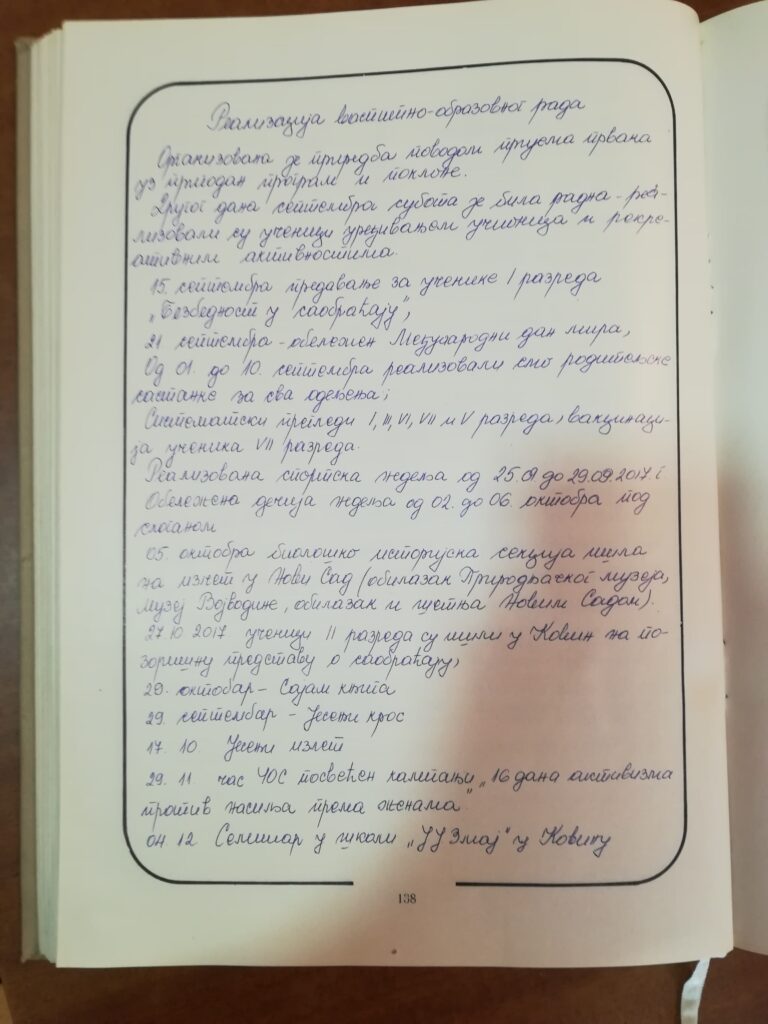 Реализација васпитно-образовног рада
Организована је приредба поводом пријема првака
уз пригодан програм и поклоне.
Другог дана септембра субота је била радна - реа-
лизовали су ученици уређивањем учионица и рекре-
ативним активностима.
15. септембра предавање за ученике I разреда
„Безбедност у саобраћају",
21. септембра - обележен Међународни дан мира,
Од 01. до 10. септембра реализовали смо родитељске
састанке за сва одељења;
Систематски прегледи I, III, VI, VII и V разреда, вакцинаци-
ја ученика VII разреда.
Реализована спортска недеља од 25.09 до 29.09.2017 г
Обележена дечија недеља од 02. до 06. октобра под
слоганом
05. октобра биолошко историјска секција ишла
на излет у Нови Сад (обилазак Природњачког музеја,
музеј Војводине, обилазак и шетња Новим Садом).
27.10.2017 ученици II разреда су ишли у Ковин на по-
зоришну представу о саобраћају,
20. октобар - Сајам књига
29. септембар - Јесењи крос
17. 10. Јесењи излет
29. 11. час ЧОС посвећен кампањи „16 дана активизма
против насиља према женама"
04 12 Семинар у школи „ЈЈ Змај" у Ковину
138